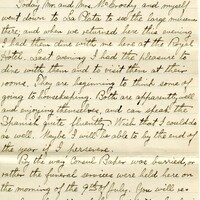 Today Mr. and Mrs. McCreechy and myself
went down to La Plata to see the large museum
there, and when we returned here this evening
I had them dine with me here at the Royal
Hotel. Last evening I had the pleasure to
dine with them and to visit them at their
rooms. They are beginning to think some of
going to housekeeping. Both are apparently well
and enjoying themselves, and can speak the
Spanish quite fluently. Wish that I could do
as well. Maybe I will be able to by the end of
the year if I persevere.
By the way Consul Baker was buried, or
rather the funeral services were held here on
the morning of the 9th of July. You will re-